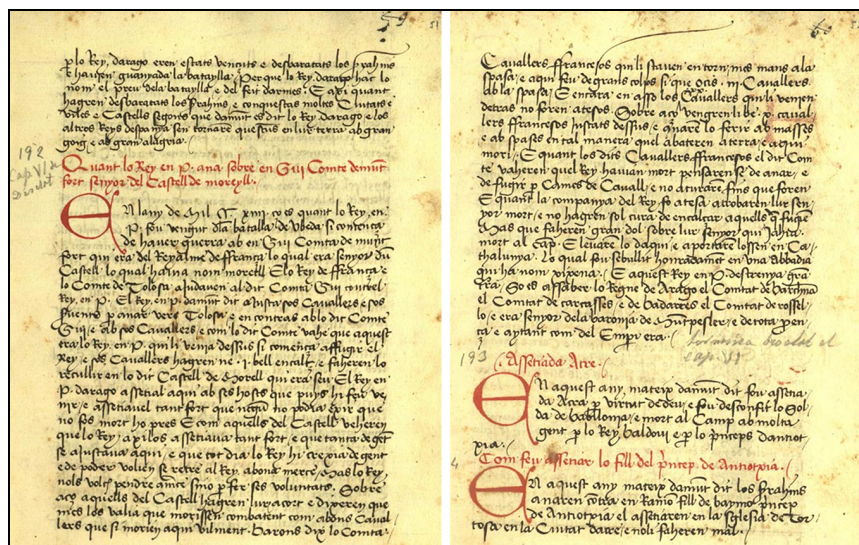 59
51
p lo Rey darago eren estats vençuts e desbaratats los srahins
e hauien guanyada la batalla Per que lo Rey darago hac lo
nom el preu dela batalla e del feu darmes E axi quant
hagren desbaratats los srahins e conquestas moltes Ciutats e
viles e Castells segons que damut es dit lo Rey darago e los
altres Reys despanya sen tornare quescus en lus terra ab gran
goig e ab gran alegria
192
Cap. VI de
Desclot
Quant lo Rey en P. ana sobre en Gui Comte demut
fort senyor del Castell de moreyll.
En lany de Mil CC xiiii. ço es quant lo Rey en
P. fou vengut dla batalla de Vbeda si comença
de hauer guerra ab en Gui Comta de munt
fort qui era del Reyalme de ffrança lo qual era senyor du
Castell lo qual hauia nom morell E lo Rey de ffrança e
lo Comte de Tolosa ajudauen al dit Comte Gui contrel
Rey en P. E l Rey en P. damut dit ajusta sos Cauallers e sos
p anar vers Tolosa e en contras ab lo dit Comte
Gui e ab sos Cauallers e com lo dit Comte vahe que aquest
era lo Rey en P. qui li venia dessus si comença affugir el
Rey e sos Cauallers hagren ne .i. bell encalç e faheren lo
recullir en lo dit Castell de Morell qui era seu El Rey en
P. darago assetial aqui ab ses hosts que puys hi feu ve
nir e assetiauel tant fort que negu no podia exir que
no fos mort ho pres E com aquells del Castell veheren
que lo Rey axi los assetiaua tant fort e que tanta de gent
se ajustaua aqui e que tot dia lo Rey hi crexia de gent
e de poder volien se retre al Rey a bona merce Mas lo Rey
nols volch pendre a merce sino p fer ses voluntats. Sobre
aço aquells del Castell hagren lur acort e dixeren que
mes los valia que morissen combatent com a bons Caual
lers que si morien aqui vilment. Barons dix lo Comta
60
Cauallers ffrancesos qui li stauen entorn mes mans a la
spasa e aqui feu de grans colps si que ocis .iii. Cauallers
ab la spasa E encara en asso los Cauallers qui li venien
detras no foren atesos. Sobre aço vengren li be .x. caual
lers ffrancesos justats dessus e anare lo ferir ab masses
e ab spases en tal manera quel abateren a terra e aqui
mori. E quant los dits Cauallers ffrancesos el dit Com
te vaheren quel Rey hauian mort pensaren se de anar e
de fugir p Cames de Cauall e no aturare fins que foren
E quant la companya del Rey fo atesa atrobaren lur sen
yor mort e no hagren sol cura de encalçar aquells qui fugien
Mas que faheren gran dol sobre lur senyor qui jahia
mort al Cap. E leuare lo daqui e aportare lossen en Ca
thalunya. Lo qual feu sebullir honradament en vna Abbadia
qui ha nom xixena. E aquest Rey en P. destrenya gra
tra. So es assaber lo Regne de Arago el Comtat de Barchna
el Comtat de carcasses e de badares el Comtat de rossel
lo e era senyor dela baronia de Muntpesler e de tota pen
ça e aytant com del Emperi era.
193
Assetiada Acre.
En aquest any mateix damunt dit fou assetia
da Acra p virtut de deu e fou desconfit lo Sol
da de babilloma e mort al Camp ab molta
gent p lo Rey baldoui e p lo princeps dantiot
xia.
4
Com feu assetiar lo fill del princep de Antiotxia.
En aquest any mateix damut dit los srahins
anaren contra en Ramo fill de baymo princep
de Antiotxia el assetiaren en la sglesia de Tor
tosa en la Ciutat daire e noli faheren mal.